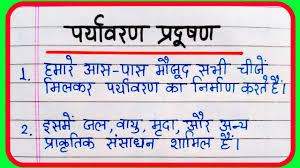 पर्यावरण प्रदूषण
1. हमारे आस-पास मौजूद सभी चीजें
मिलकर पर्यावरण का निर्माण करते हैं।
2. इसमें जल, वायु, मृदा, और अन्य
प्राकृतिक संसाधन शामिल हैं।